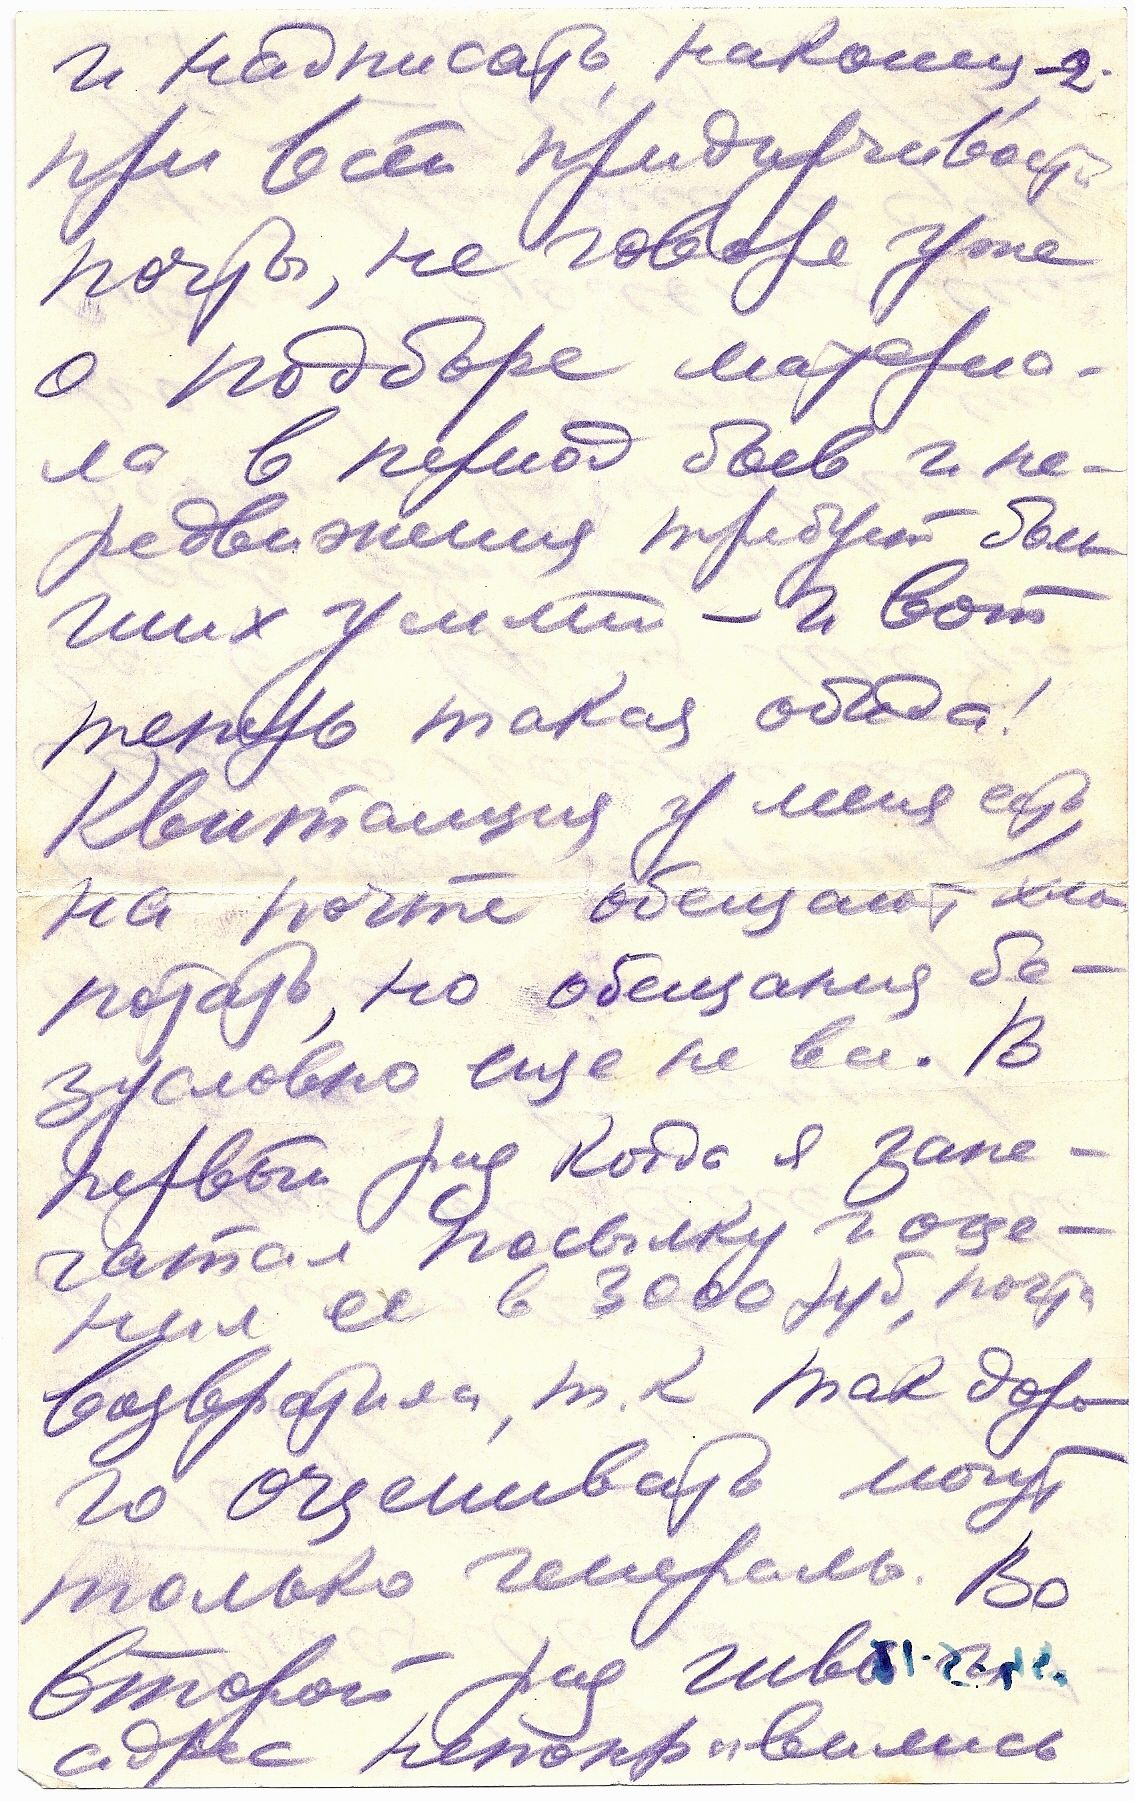 и надписать, наконец -2.
при всей придирчивости
почты, не говоря уже
о подборе материа-
ла в период боев и пе-
редвижения требует боль
ших усилий - и вот
теперь такая обида!
Квитанция у меня есть,
на почте обещают хло
потать, но обещания бе-
зусловно еще не все. В
первый раз когда я запе-
чатал посылку и оце-
нил ее в 3000 руб, почта
возвратила, т.к так доро
го оценивать могут
только генералы. Во
второй раз швы и
адрес непонравились